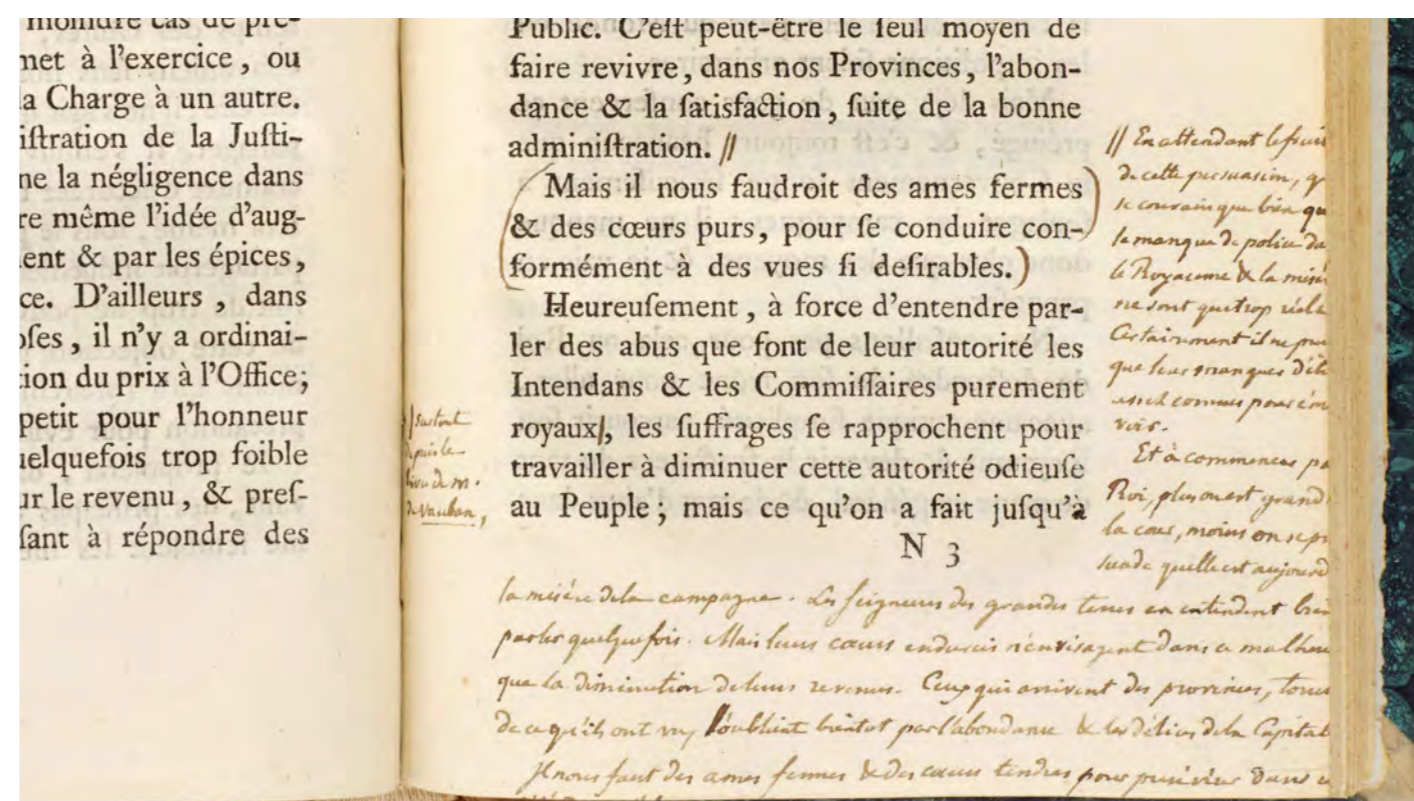 moindre cas de pré-
met à l'exercice, ou
a Charge à un autre.
iſtration de la Juſti-
ne la négligence dans
re même l'idée d'aug-
ent & par les épices,
ce. D'ailleurs, dans
oſes, il n'y a ordinai-
tion du prix à l'Office;
petit pour l'honneur
uelquefois trop foible
ur le revenu, & preſ-
ſant à répondre des
Public. C'eſt peut-être le ſeul moyen de
faire revivre, dans nos Provinces, l'abon-
dance & la ſatisfaction, ſuite de la bonne
adminiſtration. //
(Mais il nous faudroit des ames fermes
& des cœurs purs, pour ſe conduire con-
formément à des vues ſi deſirables.)
Heureuſement, à force d'entendre par-
ler des abus que font de leur autorité les
Intendans & les Commiſſaires purement
royaux/, les ſuffrages ſe rapprochent pour
travailler à diminuer cette autorité odieuſe
au Peuple; mais ce qu'on a fait juſqu'à
N 3
/ surtout
depuis le
livre de m.
de Vauban,
// En attendant
de cette persuasion,
le manque de police
le Royaume & la
ne sont que trop
Certainement il ne
que leur manque
assez connus pour
voir.
Et à commencer
Roi, plus on est grand
la cour, moins on se
suade quelle est
la misére de la campagne. Les seigneurs des grandes terres en entendent
parler quelquefois. Mais leurs cœurs endurcis n'envisagent dans ce
que la diminution de leurs revenus. Ceux qui arrivent des provinces,
de ce qu'ils ont vu, l'oublient bientot par l'abondance & les délices de la
Il nous faut des ames fermes & des cœurs tendres pour